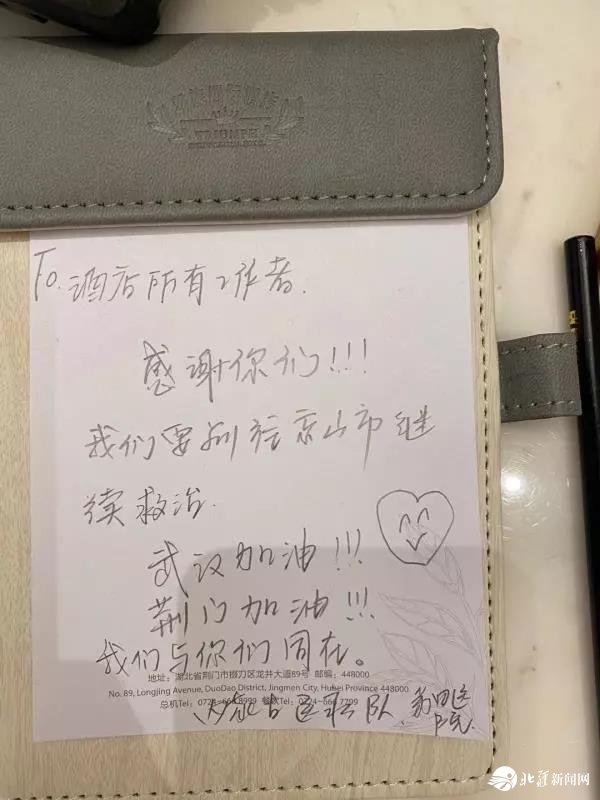 TRIUMPH
To. 酒店所有工作者.
感谢你们!!!
我们要前往京山市继
续救治.
武汉加油!!!
荆门加油!!!
我们与你们同在。
地址：湖北省荆门市掇刀区龙井大道89号 邮编：448000
No. 89, Longjing Avenue, DuoDao District, Jingmen City, Hubei Province 448000
总机Tel: 0724-666 8999 餐饮Tel: 0724-666 7799
内蒙古医疗队.
北疆新闻网